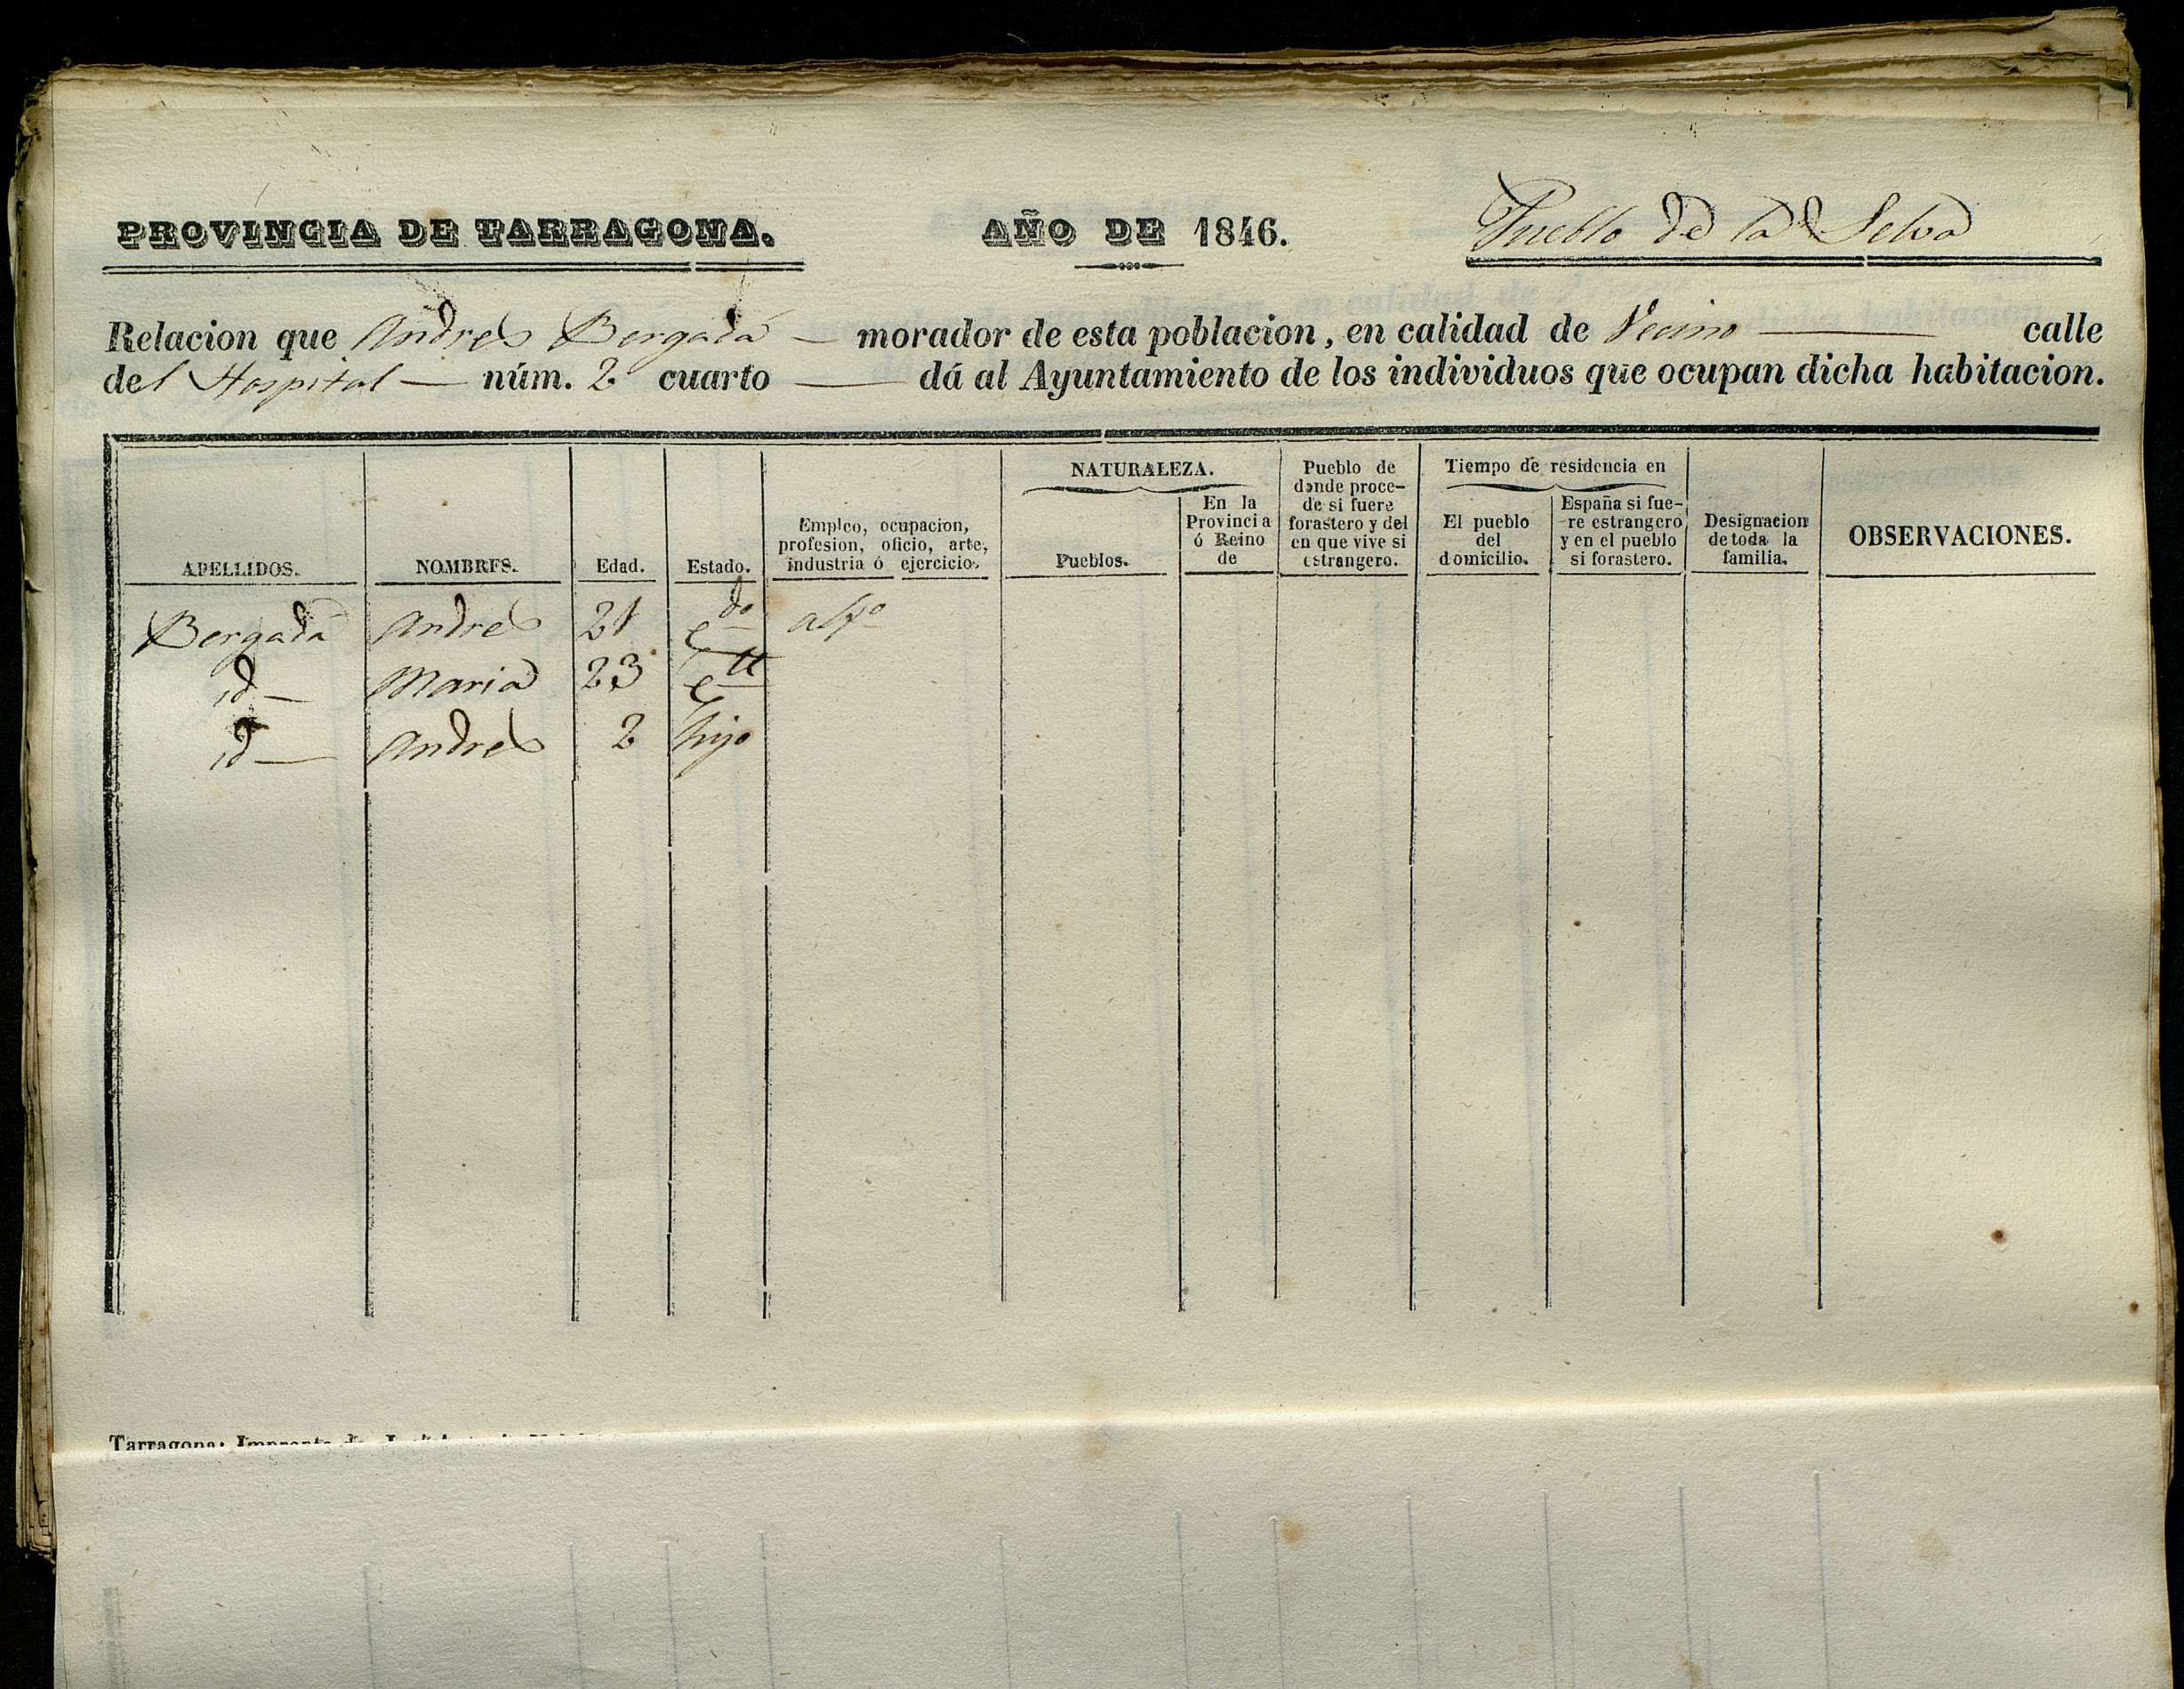 PROVINCIA DE TARRAGONA.
AÑO DE 1846.
Pueblo de la Selva
Relacion que Andres Bergadá — morador de esta poblacion, en calidad de Vecino — calle
del Hospital — núm. 2 cuarto — dá al Ayuntamiento de los individuos que ocupan dicha habitacion.
APELLIDOS.
NOMBRES.
Edad.
Estado.
Empleo, ocupacion,
profesion, oficio, arte,
industria ó ejercicio.
NATURALEZA.
Pueblos.
En la
Provincia
ó Reino
de
Pueblo de
donde proce-
de si fuere
forastero y del
en que vive si
estrangero.
Tiempo de residencia en
El pueblo
del
domicilio.
España si fue-
re estrangero
y en el pueblo
si forastero.
Designacion
de toda la
familia.
OBSERVACIONES.
Bergadá Andres 21 cdo
id — Maria 23
id — Andres 2 hijo
Tarragona: Imprenta de